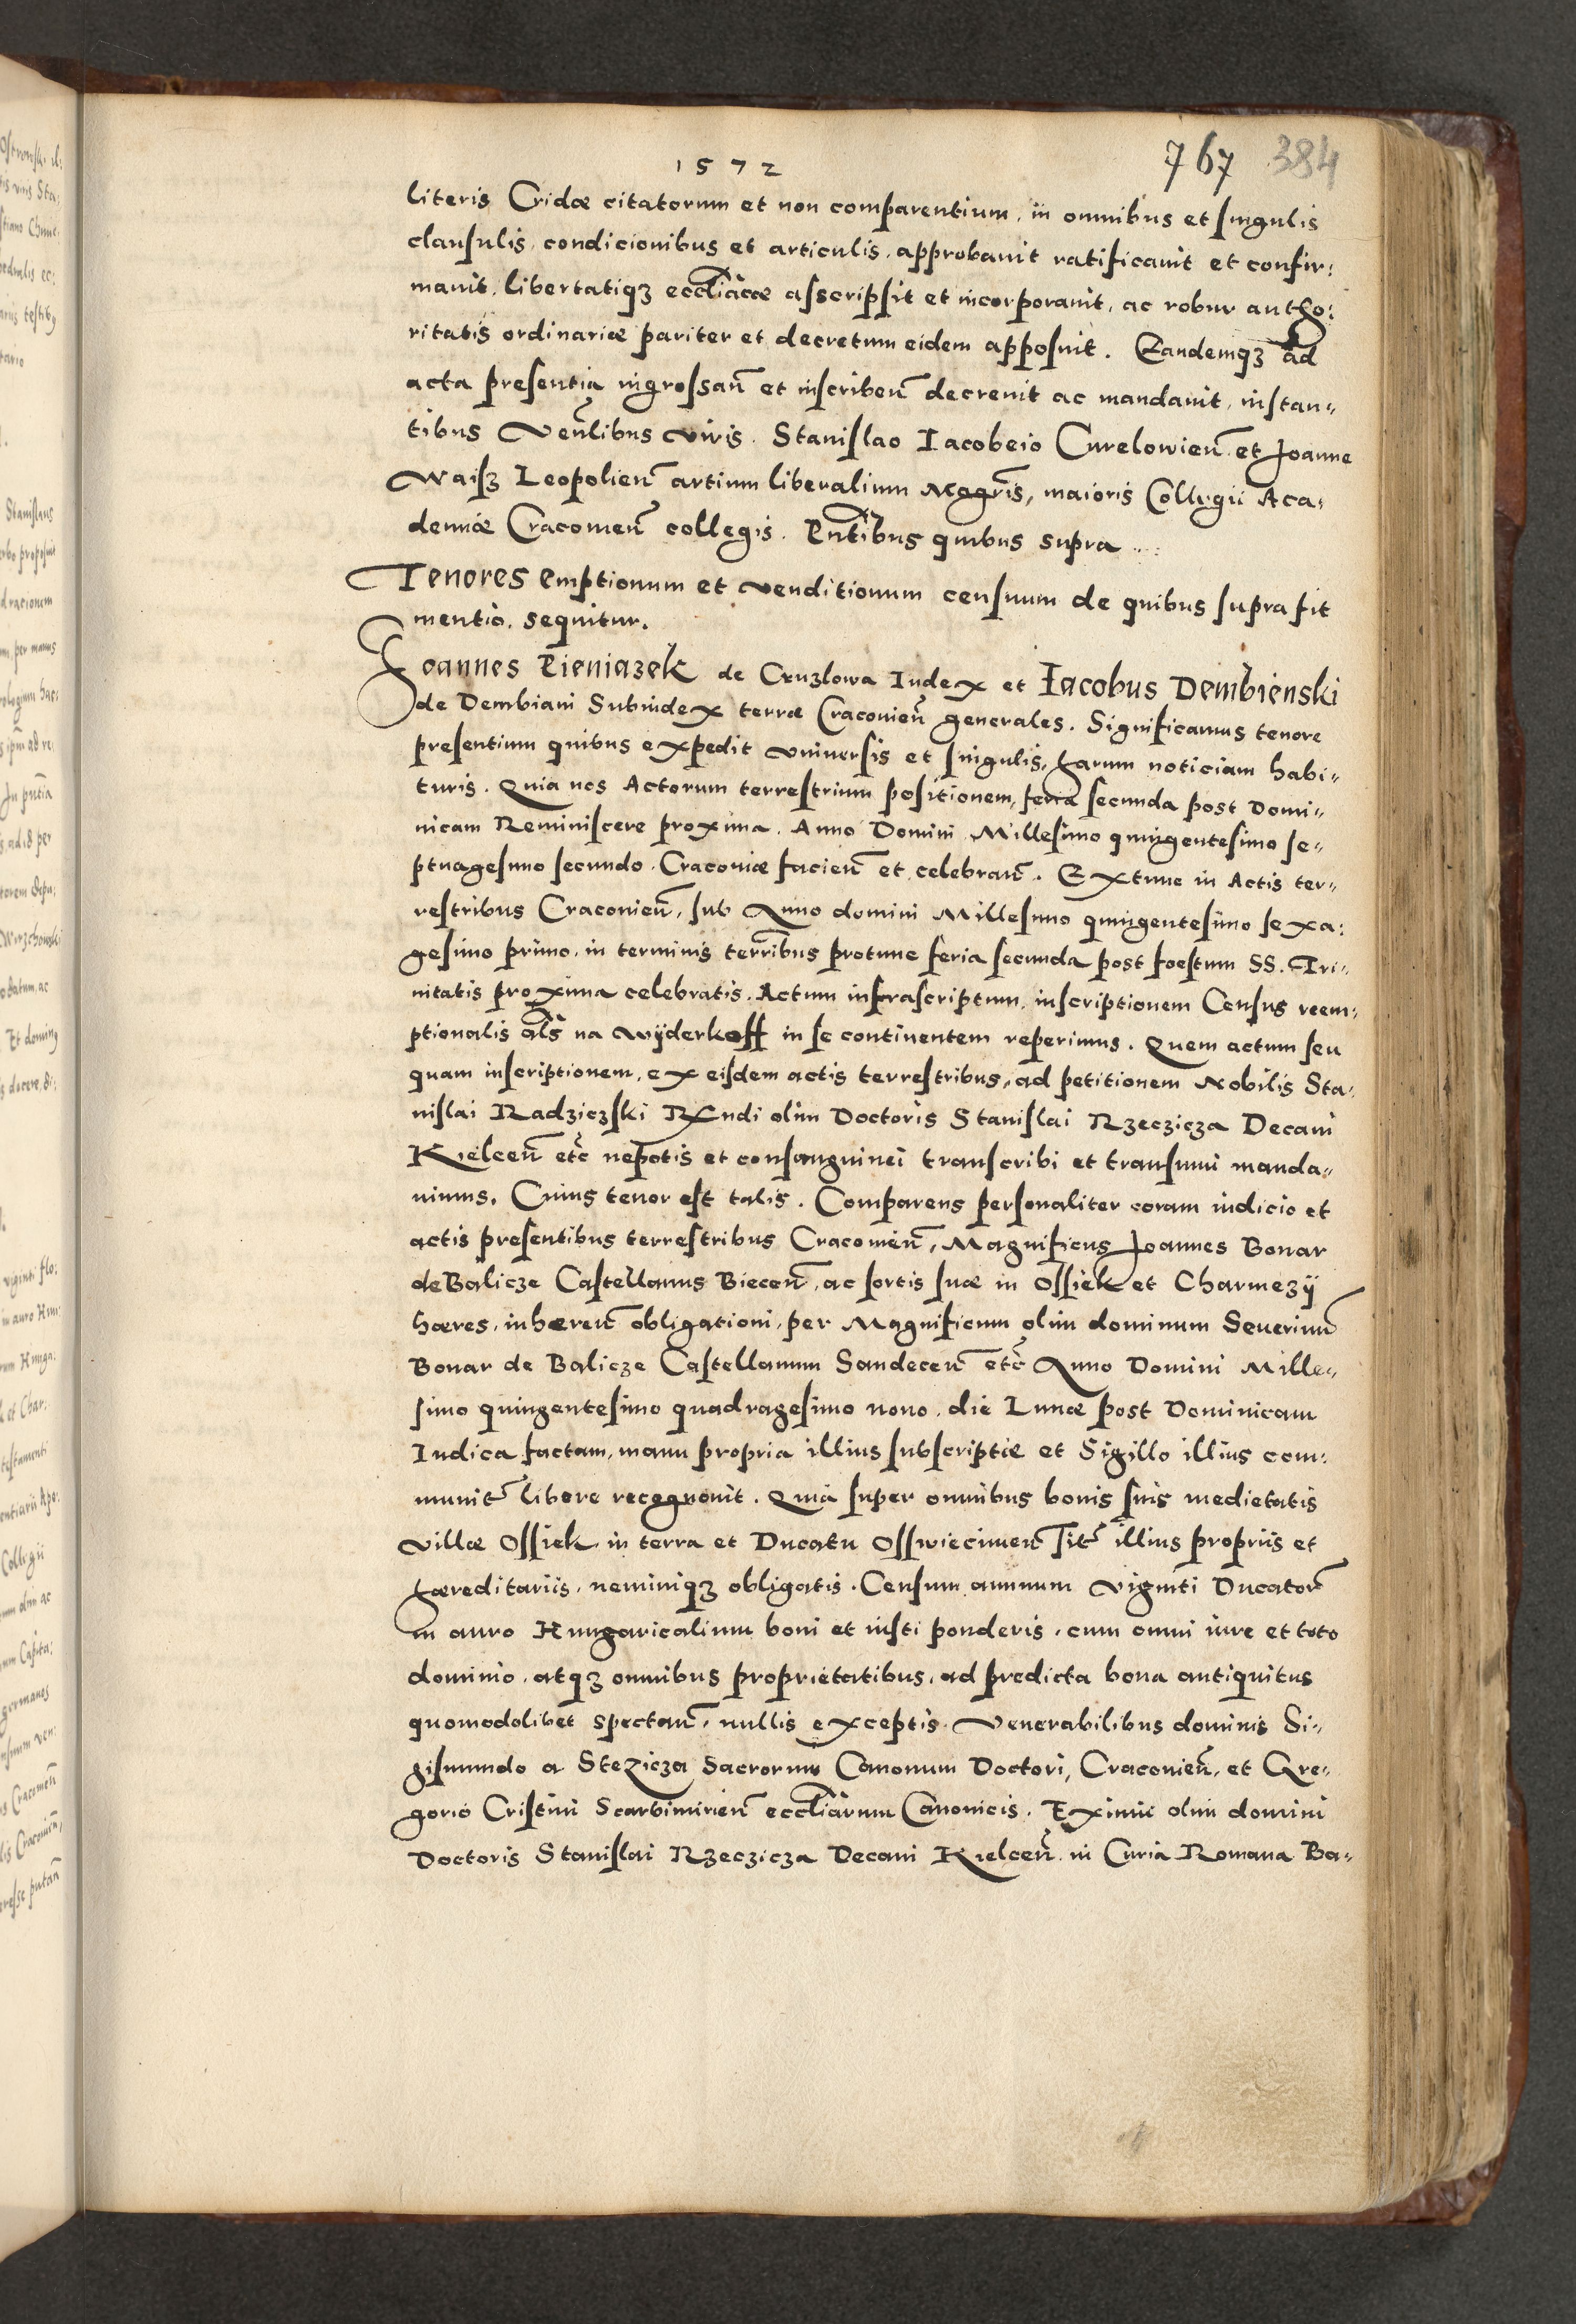 1572
767 384
literis Cridæ citatorum et non comparentium, in omnibus et singulis
clausulis, condicionibus et articulis, approbauit ratificauit et confir:
mauit, libertatiqꝫ eccl̃iacæ asscripsit et incorporauit, ac robur autho:
ritatis ordinariæ pariter et decretum eidem apposuit. Eandemqꝫ ad
acta presentia ingrossan̄ et inscriben̄ decreuit ac mandauit, instan„
tibus Ven̄libus viris. Stanislao Iacobeio Curelowien̄ et Joanne
Waisz Leopolien̄ artium liberalium Magr̄is, maioris Collegii Aca„
demiæ Cracouien̄ collegis. Pn̄tibus quibus supra ...
Tenores emptionum et venditionum censuum de quibus supra fit
mentio, sequitur.
Joannes Pieniazek de Cruzlowa Iudex et Iacobus Dembienski
de Dembiani Subiudex terræ Cracouien̄ generales. Significamus tenore
presentium quibus expedit vniuersis et singulis, harum noticiam habi„
turis. Quia nos Actorum terrestrium positionem, feria secunda post Domi„
nicam Reminiscere proxima. Anno Domini Millesimo quingentesimo se„
ptuagesimo secundo. Cracouiæ facien̄ et celebran̄. Extunc in Actis ter„
restribus Cracouien̄, sub Anno domini Millesimo quingentesimo sexa:
gesimo primo, in terminis terr̄ibus protunc feria secunda post foestum SS. Tri„
nitatis proxima celebratis. Actum infrascriptum, inscriptionem Census reem„
ptionalis al̄s na wÿderkoff in se continentem reperimus. Quem actum seu
quam inscriptionem, ex eisdem actis terrestribus, ad petitionem Nobilis Sta„
nislai Radziczski Rndi olim Doctoris Stanislai Rzeczicza Decani
Kielcen̄ etc̄ nepotis et consanguinei transcribi et transumi manda„
uimus. Cuius tenor est talis. Comparens personaliter coram iudicio et
actis presentibus terrestribus Cracouien̄, Magnificus Joannes Bonar
de Balicze Castellanus Biecen̄, ac sortis suæ in Ossiek et Charmezÿ
hæres, inhæren̄ obligationi, per Magnificum olim dominum Seuerinū
Bonar de Balicze Castellanum Sandecen̄ etc̄ Anno Domini Mille„
simo quingentesimo quadragesimo nono, die Lunæ post Dominicam
Iudica factam, manu propria illius subscriptæ et Sigillo illius com„
munit̄ libere recognouit. Quia super omnibus bonis suis medietatis
villæ Ossiek, in terra et Ducatu Osswiecimen̄ sit̄ illius propriis et
hæreditariis, neminiqꝫ obligatis. Censum annuum viginti Ducator̄
in auro Hungaricalium boni et iusti ponderis, cum omni iure et toto
dominio, atqꝫ omnibus proprietatibus, ad predicta bona antiquitus
quomodolibet spectan̄, nullis exceptis. Venerabilibus dominis Si„
gismundo a Stezicza Sacrorum Canonum Doctori, Cracouien̄, et Gre„
gorio Cristini Scarbimirien̄ eccl̃iarum Canonicis. Eximii olim domini
Doctoris Stanislai Rzeczicza Decani Kielcen̄ in Curia Romana Ba„